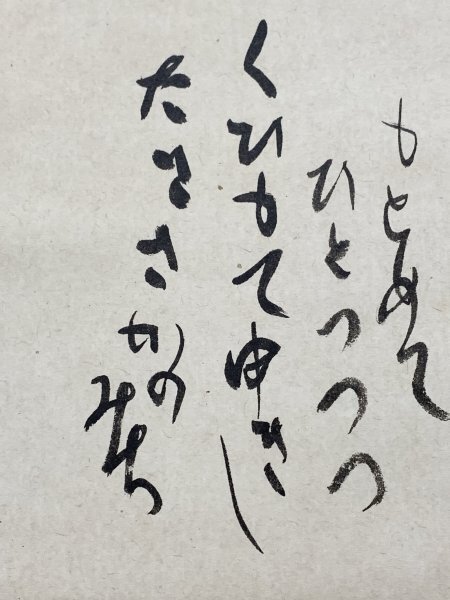 もとめて
ひとつつつ
くひもてゆきし
たきさかの
みち